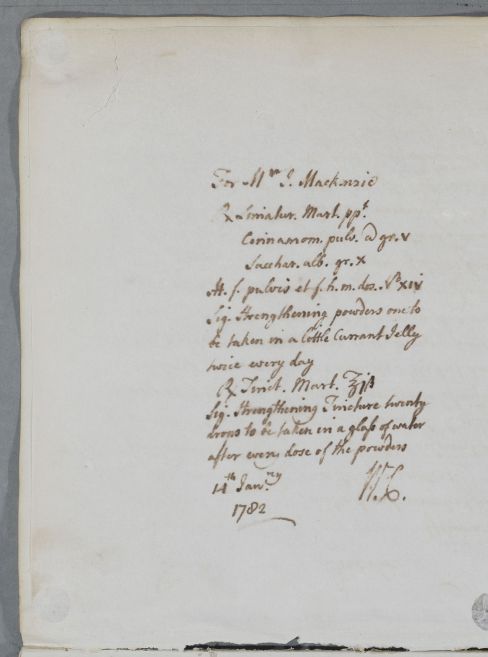 For Mrs J. Mackenzie
℞ Limatur. Mart. ppt.
Cinnamom. pulv. a gr. v
Sacchar. alb. gr. x
M. f. pulvis et f. h. m. dos. No xiv
Sig. Strengthening powders one to
be taken in a little Currant Jelly
twice every day
℞ Tinct. Mart. ℥jß
Sig. Strengthening Tincture twenty
drops to be taken in a glass of water
after every dose of the powders
14th Janry
1782